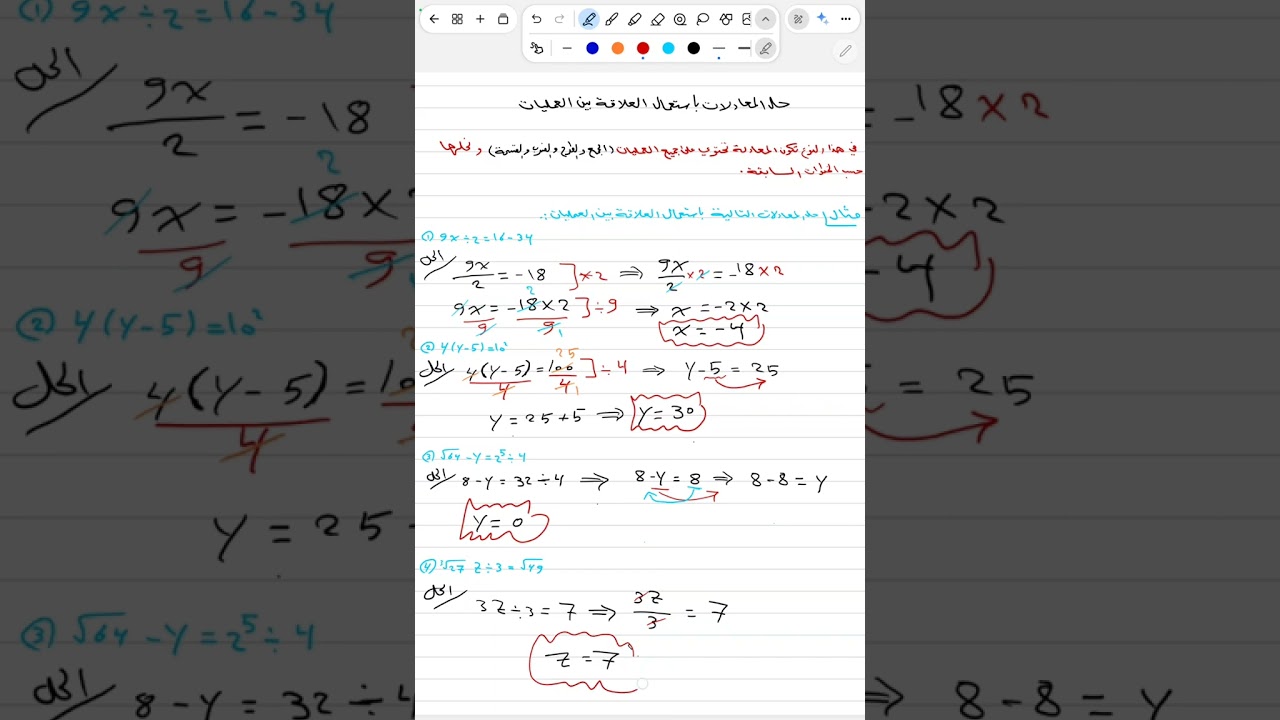 حل المعادلات بأستعمال العلاقة بين العمليات
في هذا النوع تكون المعادلة تحتوي على جميع العمليات (الجمع والطرح والضرب والقسمة) ونحلها
حسب الخطوات السابقة.
مثال/ حل المعادلات التالية بأستعمال العلاقة بين العمليات:.
① 9x÷2=16-34
الحل/ 9x/2 = -18 ]×2 ⇒ 9x/2 ×2 = -18×2
9x/9 = -18×2/9 ]÷9 ⇒ x = -2×2
2 1
x = -4
② 4(y-5)=10²
الحل/ 4(y-5)/4 = 100/4 ]÷4 ⇒ y-5 = 25
25 1
y = 25+5 ⇒ y = 30
③ √64 - y = 2⁵÷4
الحل/ 8-y = 32÷4 ⇒ 8-y = 8 ⇒ 8-8 = y
y = 0
④ ³√27 z÷3 = √49
الحل/ 3z÷3 = 7 ⇒ 3z/3 = 7
z = 7